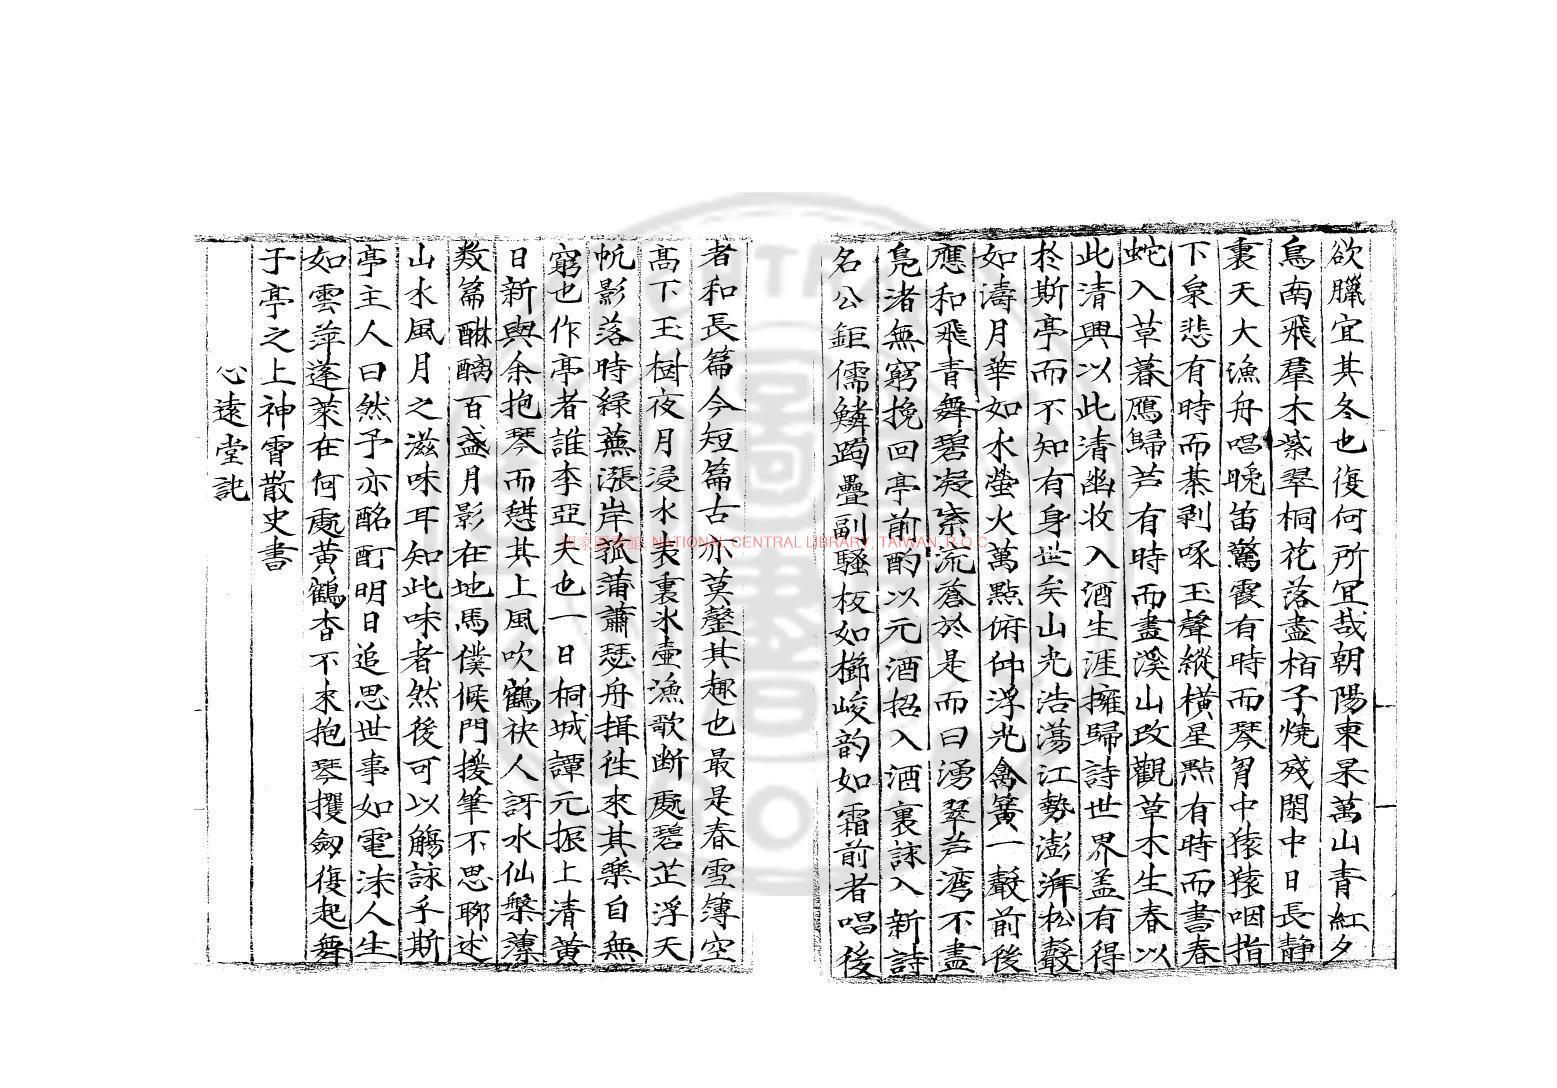 欲臘宜其冬也復何所冝哉朝陽東杲萬山青紅夕
鳥南飛羣木紫翠桐花落盡栢子燒殘閑中日長靜
裏天大漁舟唱晚笛驚霞有時而琴胷中猿猿咽指
下泉悲有時而棊剥啄玉聲縱橫星點有時而書春
蛇入草暮鴈歸芦有時而畫溪山改觀草木生春以
此清興以此清幽收入酒生涯擁歸詩世界盖有得
扵斯亭而不知有身世矣山光浩蕩江勢澎湃松聲
如濤月華如水螢火萬點俯仰浮光禽簧一聲前後
應和飛青舞碧凝紫流蒼於是而曰湧翠芦灣不盡
鳬渚無窮挽回亭前酌以元酒招入酒裏詠入新詩
名公鉅儒鱗躅疊副騷板如櫛峻韵如霜前者唱後
者和長篇今短篇古亦莫罄其趣也最是春雪簿空
髙下玉樹夜月浸水表裏氷壷漁歌断處碧芷浮天
帆影落時緑蕪漲岸孤蒲蕭瑟舟楫徃來其樂自無
窮也作亭者誰李亞夫也一日桐城譚元振上清黄
日新與余抱琴而憇其上風吹鶴袂人訝水仙槃薄
数篇酣醻百盞月影在地馬僕候門援筆不思聊述
山水風月之滋味耳知此味者然後可以觴詠乎斯
亭主人曰然予亦酩酊明日追思世事如電沫人生
如雲萍蓬萊在何處黄鶴杳不來抱琴攫劔復起舞
子亭之上神霄散史書
心遠堂記
國家圖書館 NATIONAL CENTRAL LIBRARY, TAIWAN, R.O.C